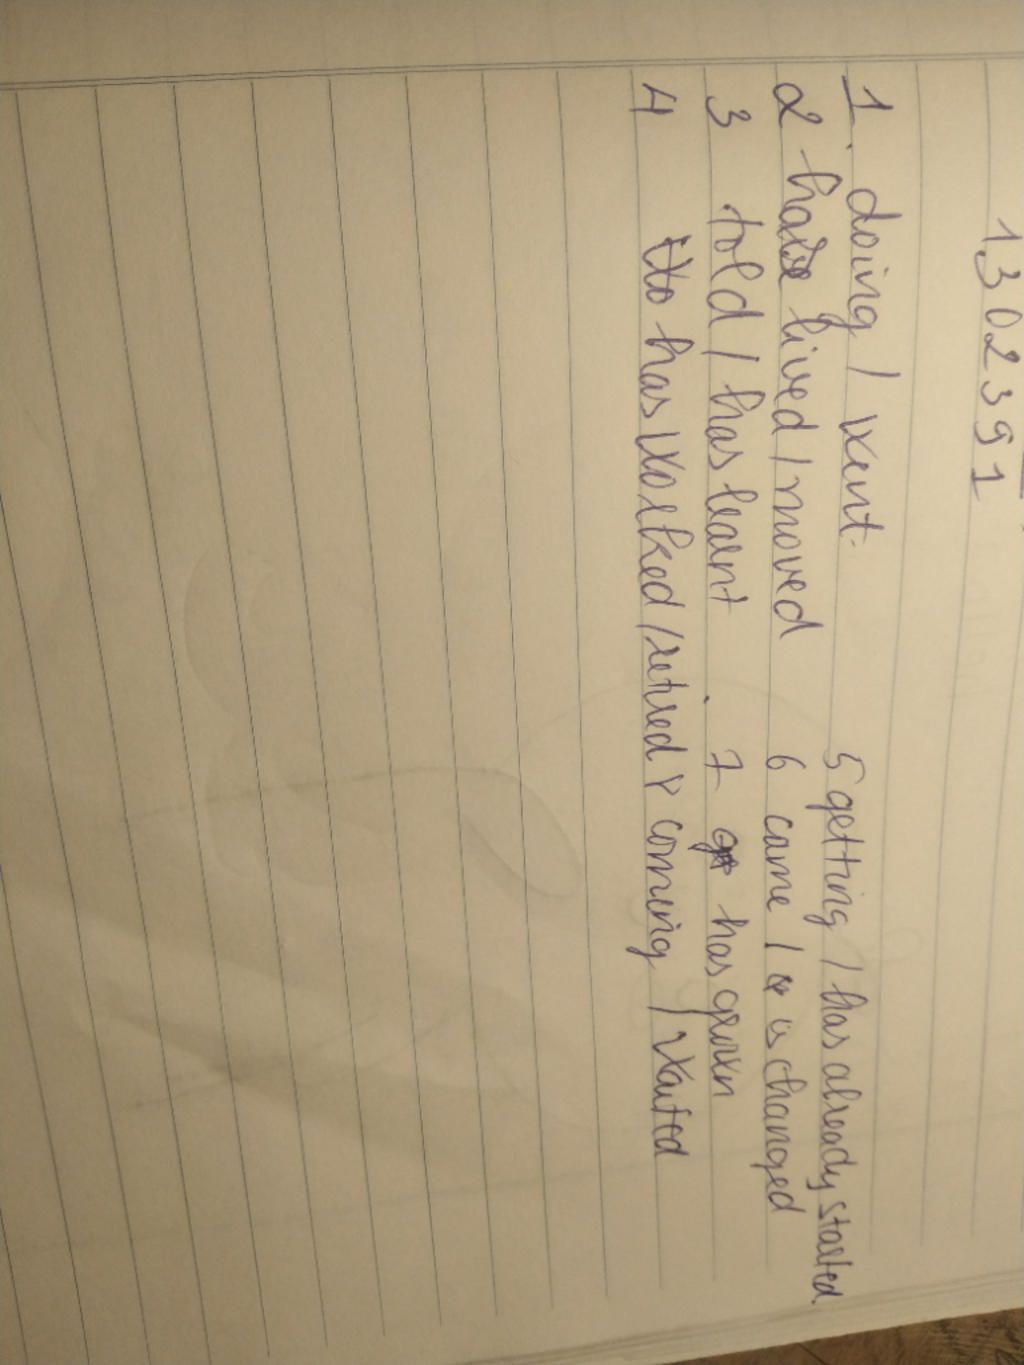 1302391
1. doing / went. 5 getting / has already started.
2 have lived / moved 6 came / is changed
3 told / has learnt 7 has grown
4 has worked / retired 8 coming / waited